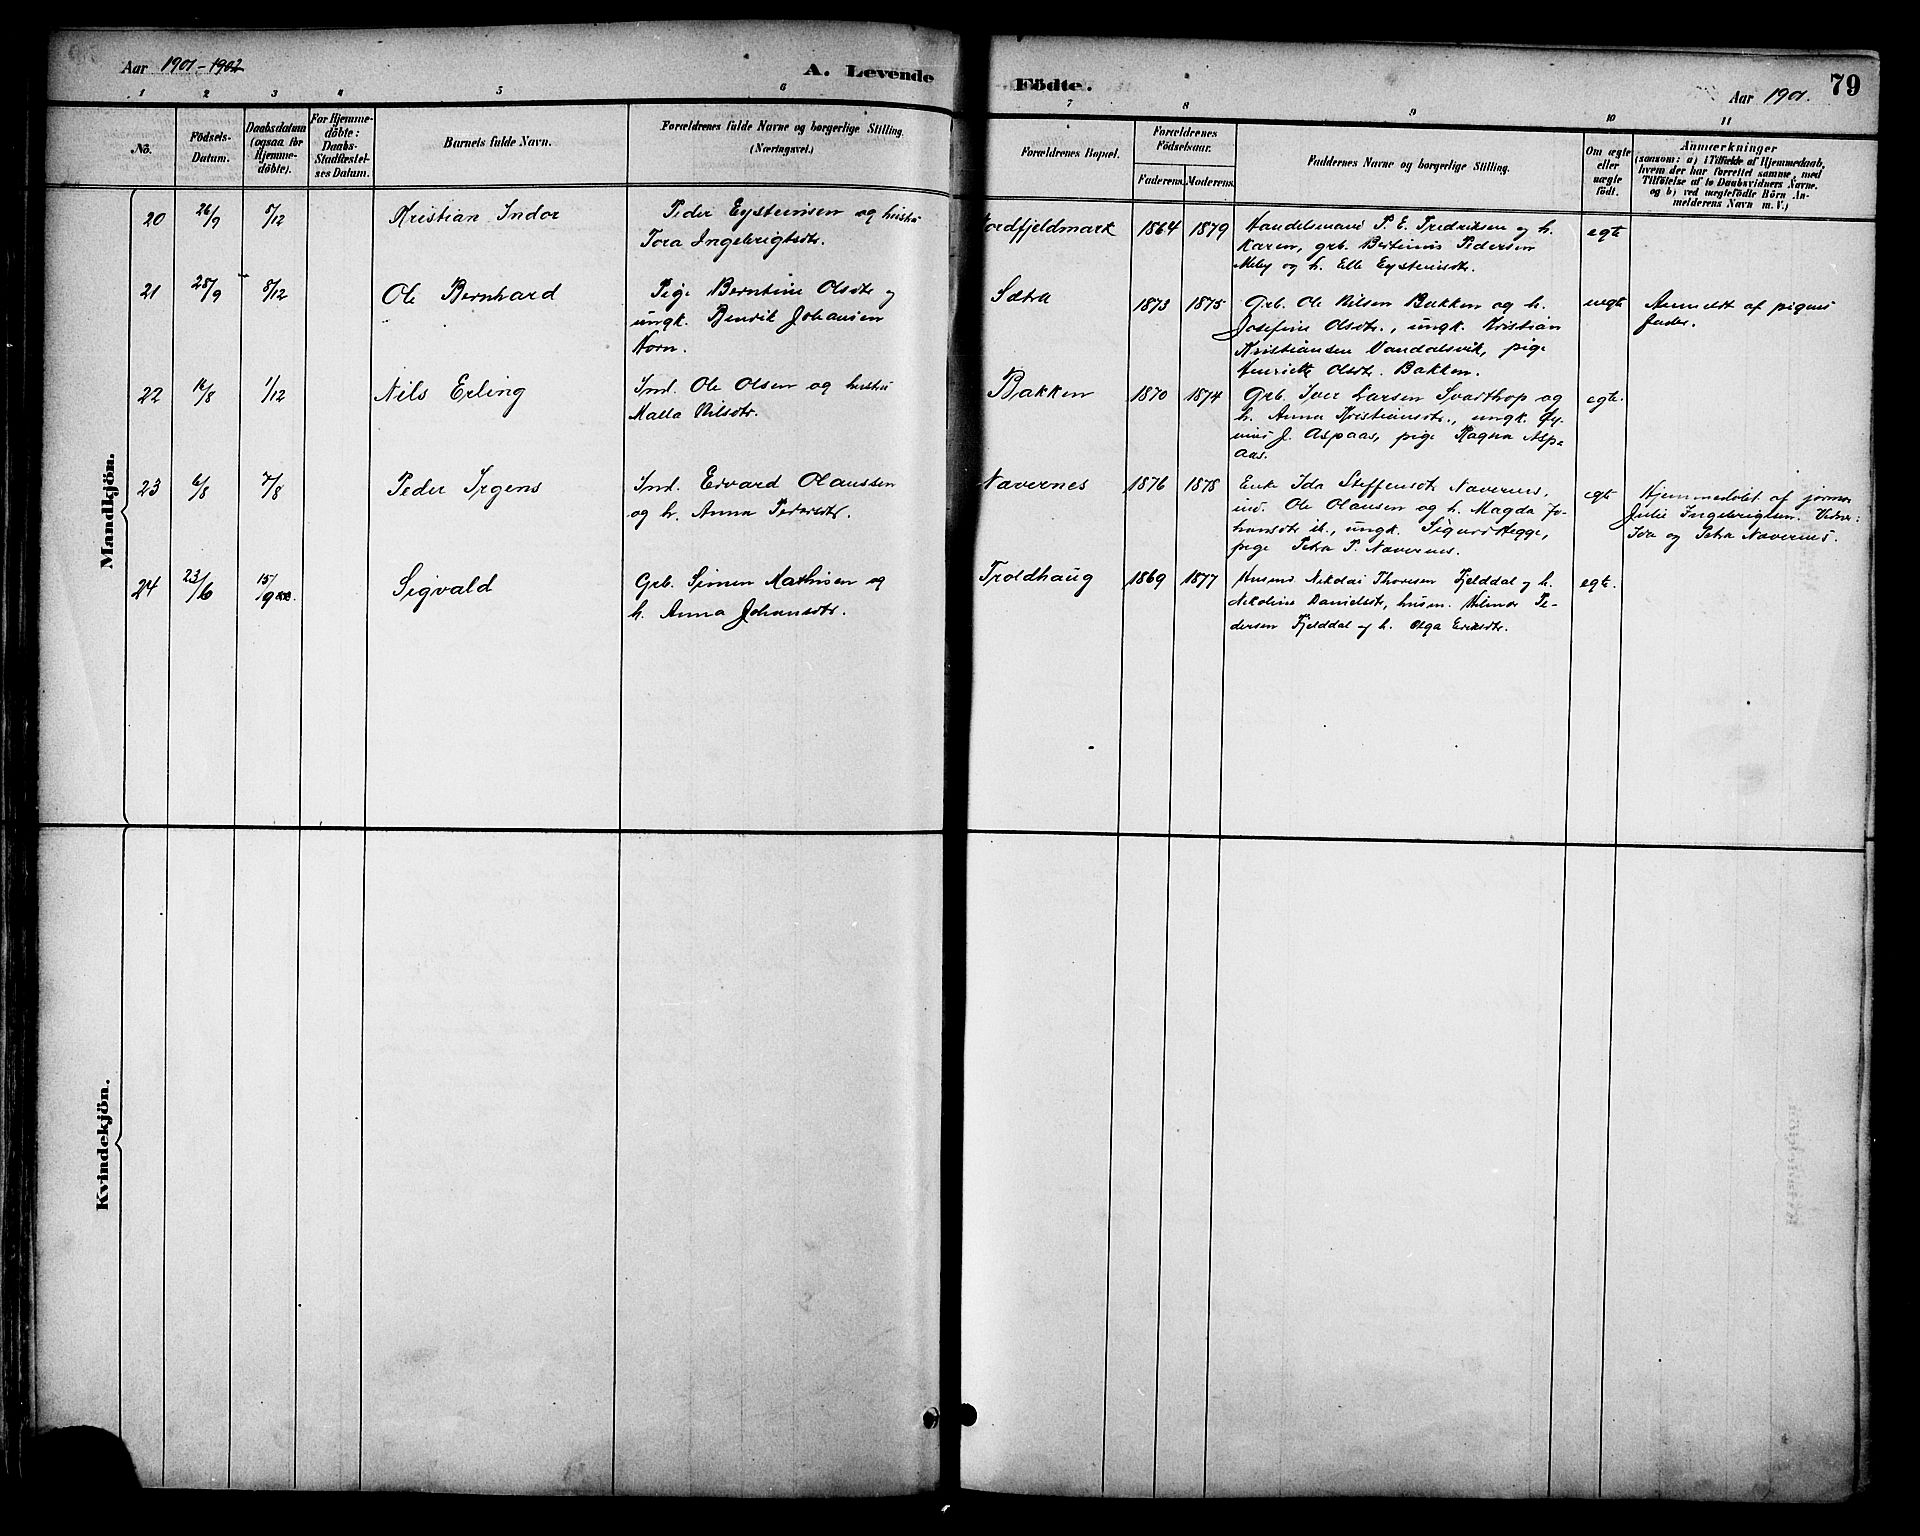 Aar 1901-1902
A. Levende
Födte.
Aar 1901.
79
1 2 3 4 5 6 7 8 9 10 11
No.
Födsels-
Datum.
Daabsdatum
(ogsaa for
Hjemme-
döbte).
For Hjemme-
döbte:
Daabs-
Stadfæstel-
ses Datum.
Barnets fulde Navn.
Forældrenes fulde Navne og borgerlige Stilling.
(Næringsvei.)
Forældrenes Bopæl.
Forældrenes
Födselsaar.
Faderens. Moderens.
Faddernes Navne og borgerlige Stilling.
Om ægte
eller
uægte
födt.
Anmærkninger
(saasom: a) i Tilfælde af Hjemmedaab,
hvem der har forrettet samme, med
Tilföielse af to Daabsvidners Navne.
og b) ved uægtefödte Börn An-
melderens Navn m. V.)
Mandkjön.
20 26/9 8/12 Kristian Indor
Peder Eysteinsen og hustru
Tora Ingebrigtsdtr.
Nordfjeldmark 1864 1879
Handelsmand P. E. Fredriksen og h.
Karen, grb. Pedersen
Meby og h. Elle Eysteinsdtr.
egte
21 28/9 8/12 Ole Bernhard
Pige Berntine Olsdtr og
ungk. Benrik Johansen
Horn.
Sætra 1873 1875
Grb. Ole Nilsen Bakken og h.
Josefine Olsdtr., ungk. Kristian
Kristiansen Vandalsvik, pige
Henriette Olsdtr. Bakken.
uegte
Anmeldt af pigens
fader.
22 16/8 1/12 Nils Erling
Ind. Ole Olsen og hustru
Malla Nilsdtr.
Bakken 1870 1874
Grb. Iver Larsen Svarthop og
h. Anna Kristiansdtr., ungk.
J. Aspaas, pige Ragna Asp-
aas.
egte.
23 6/8 7/8 Peder Irgens
Ind. Edvard Olaussen
og h. Anna Pedersdtr.
Nævernes 1876 1878
Enke Ida Steffensdtr Nævernes,
ind. Ole Olausen og h. Magda Jo-
hansdtr ib., ungk. Sigurd Hegge,
pige Petra P. Nævernes.
egte
Hjemmedöbt af jormor
Julie Ingebrigtsen. Vidner:
Ida og Petra Nævernes.
24 23/6 15/9 Sigvald
Grb. Simon Mathisen og
h. Anna Johansdtr.
Troldhaug 1869 1877
Husmd Nikolai Thoresen Fjelddal og h.
Nikoline Danielsdtr, husm. Hilmar Pe-
dersen Fjelddal og h. Olga Eriksdtr.
egte.
Kvindekjön.